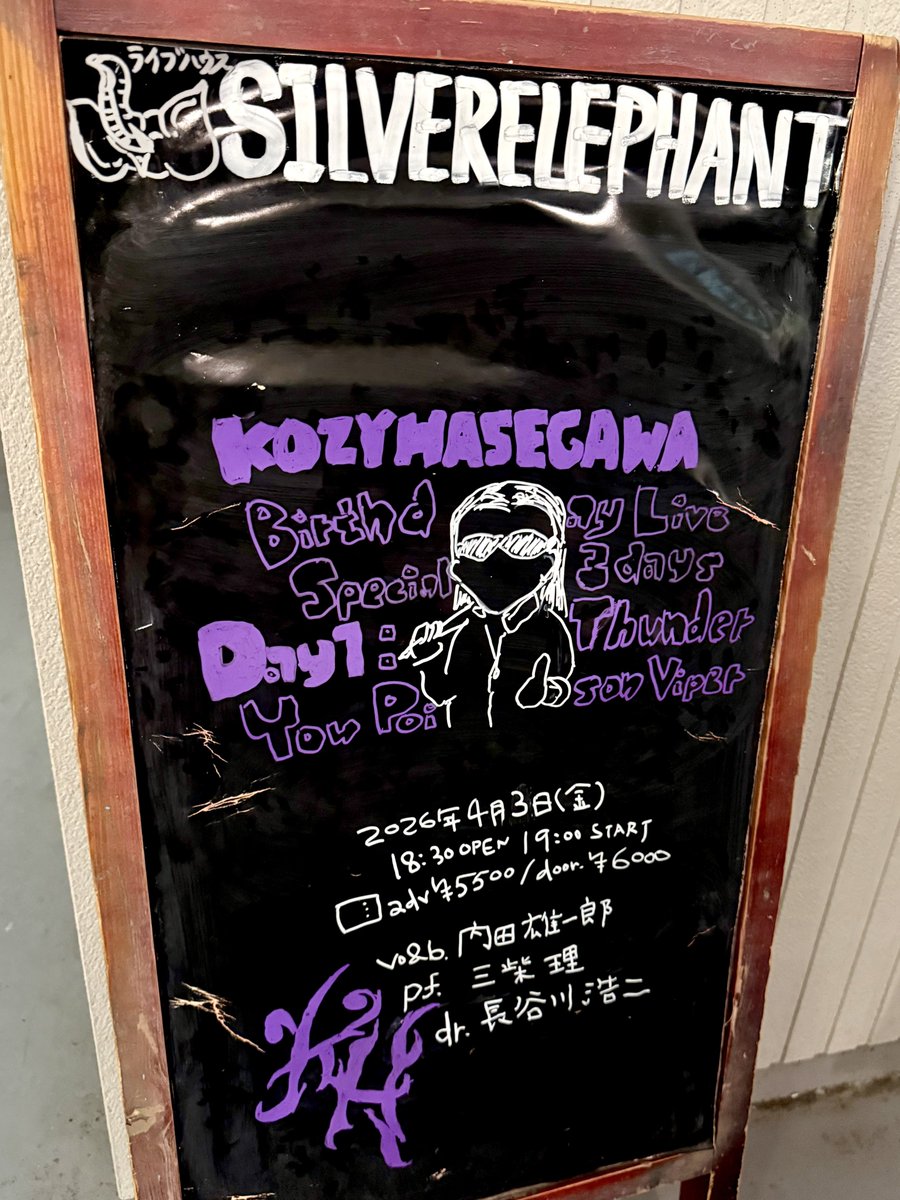 ライブハウス
SILVERELEPHANT
KOZYHASEGAWA
Birthday Live
Special 3days
Day1: Thunder
You Poison Viper
2026年4月3日(金)
18:30 OPEN 19:00 START
adv.¥5500/door.¥6000
vo&b. 内田雄一郎
pf. 三柴 理
dr. 長谷川浩二
KH